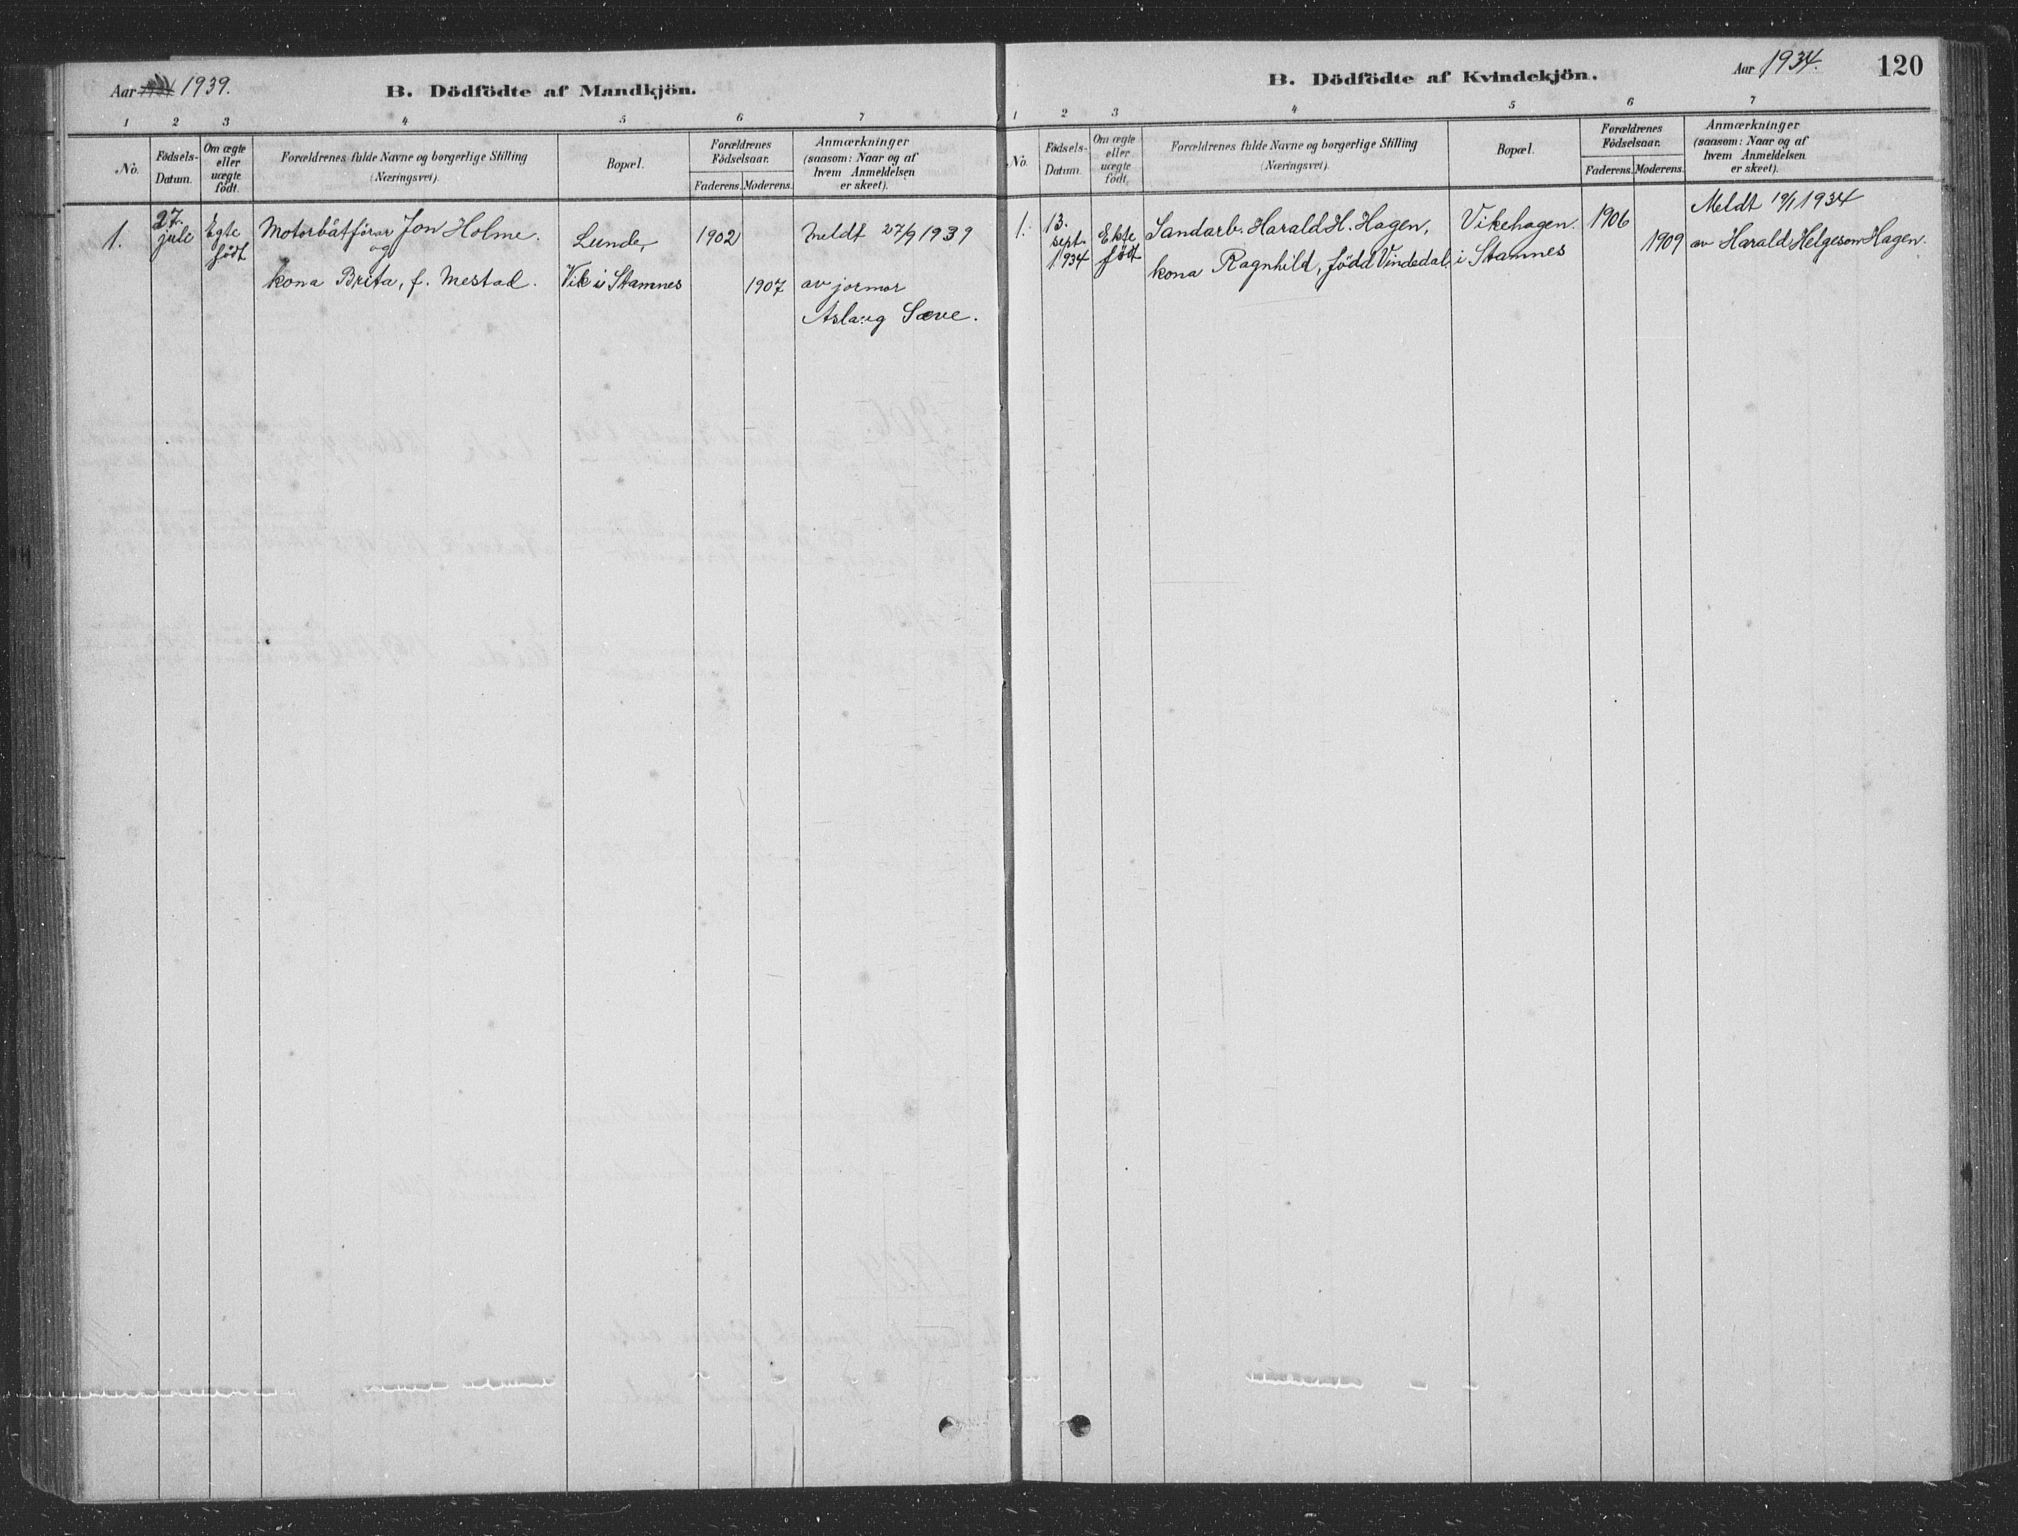 Aar 1939.
B. Dödfödte af Mandkjön.
1 2 3 4 5 6 7
No.
Födsels-
Datum.
Om ægte
eller
uægte
födt.
Forældrenes fulde Navne og borgerlige Stilling
(Næringsvei).
Bopæl.
Forældrenes
Födselsaar.
Faderens. Moderens.
Anmærkninger
(saasom: Naar og af
hvem Anmeldelsen
er skeet).
1.
27.
juli
Egte
født
Motorbåtförar Jon Holme.
og
kona Brita, f. Mestad.
Lunde,
Vik i Stamnes
1902
1907
Meldt 27/9 1939
av jormor
Aslaug Sæve.
B. Dödfödte af Kvindekjön.
Aar 1934.
120
1 2 3 4 5 6 7
No.
Födsels-
Datum.
Om ægte
eller
uægte
födt.
Forældrenes fulde Navne og borgerlige Stilling
(Næringsvei).
Bopæl.
Forældrenes
Födselsaar.
Faderens. Moderens.
Anmærkninger
(saasom: Naar og af
hvem Anmeldelsen
er skeet).
1.
13.
sept.
1934
Ekte
født
Sandarb. Harald H. Hagen,
kona Ragnhild, född Vindedal,
Vikehagen.
i Stamnes
1906
1909
Meldt 1934
av Harald Helgeson Hagen.